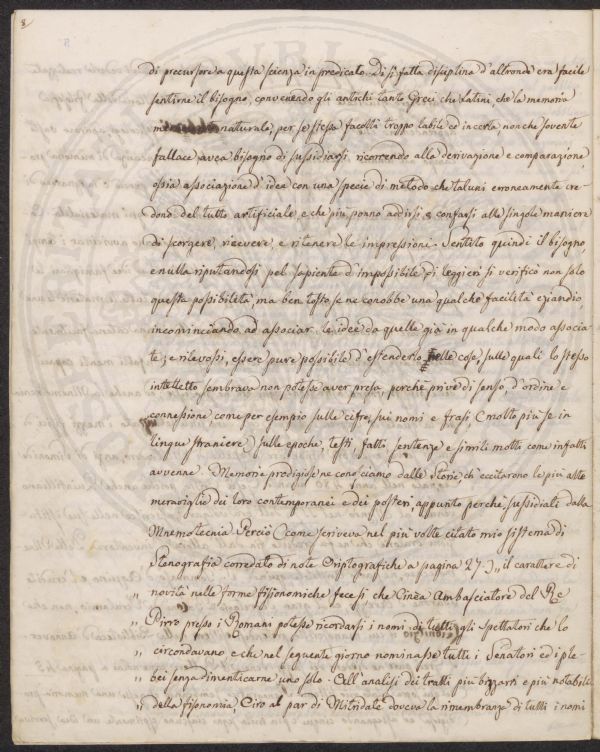 8
di precursore a questa scienza in predicato. Di sì fatta disciplina d'altronde era facile
sentirne il bisogno, convenendo gli antichi tanto Greci che Latini, che la memoria
naturale, per se stessa facoltà troppo labile ed incerta, nonche sovente
fallace avea bisogno di sussidiarsi, ricorrendo alla derivazione e comparazione,
ossia associazione d'idea con una specie di metodo che taluni erroneamente cre-
dono del tutto artificiale, e che più ponno addirsi e confarsi alle singole maniere
di scorgere, ricevere, e ritenere le impressioni. Sentito quindi il bisogno,
e nulla riputandosi pel sapiente d'impossibile, di leggieri si verificò non solo
questa possibilità, ma ben tosto se ne conobbe una qualche facilità eziandio,
incominciando ad associar le idee da quelle già in qualche modo associa-
te; e rilevossi, essere pure possibile d'estenderlo nelle cose, sulle quali lo stesso
intelletto sembrava non potesse aver presa, perchè prive di senso, d'ordine e
connessione, come per esempio sulle cifre, sui nomi e frasi, (molto più se in
lingue straniere) sulle epoche, testi, fatti, sentenze e simili motti come infatti
avvenne. Memorie prodigiose ne conosciamo dalle Storie, ch'eccitarono le più alte
meraviglie dei loro contemporanei e dei posteri appunto perchè sussidiati dalla
Mnemotecnia. Perciò (come scriveva nel più volte citato mio sistema di
Stenografia corredato di note Criptografiche a pagina 27.) „ il carattere di
„ novità nelle forme fisionomiche fece sì che Cinèa Ambasciatore del Re
„ Pirro presso i Romani potesse ricordarsi i nomi di tutti gli spettatori che lo
„ circondavano e che nel seguente giorno nominasse tutti i Senatori ed i ple-
„ bei senza dimenticarne uno solo. Coll'analisi dei tratti più bizzarri e più notabili
„ della fisonomia, Ciro al par di Mitridate doveva la rimembranza di tutti i nomi